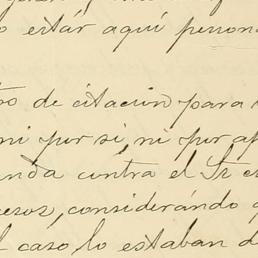 o estár aquí person
ro de citación para
ni por si, ni por ap
anda contra el Sr
esos, considerando q
l caso lo estaban d